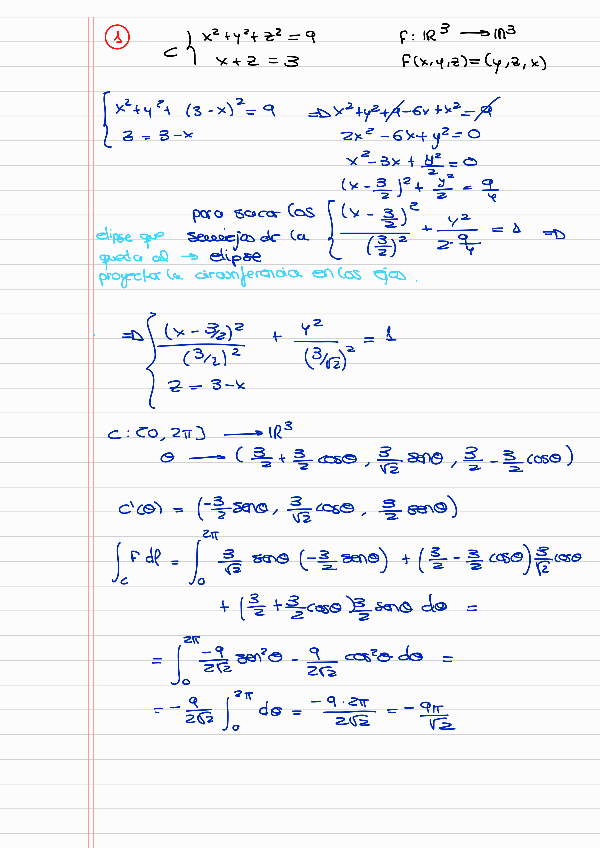 1
C { x² + y² + z² = 9    F: ℝ³ → ℝ³
x + z = 3    F(x,y,z) = (y, z, x)
{ x² + y² + (3-x)² = 9 ⇒ x² + y² + 9 - 6x + x² = 9
3 = 3-x    2x² - 6x + y² = 0
x² - 3x + y²/2 = 0
(x - 3/2)² + y²/2 = 9/4
para sacar los { (x - 3/2)²/(3/2)² + y²/(2·9/4) = 1 ⇒
elipse que semiejes de la
queda al → elipse
proyectar la circunferencia en los ejes.
⇒ { (x - 3/2)²/(3/2)² + y²/(3/√2)² = 1
z = 3-x
C: [0, 2π] → ℝ³
θ → (3/2 + 3/2 cosθ, 3/√2 senθ, 3/2 - 3/2 cosθ)
C'(θ) = (-3/2 senθ, 3/√2 cosθ, 3/2 senθ)
∫_C F dl = ∫₀^2π 3/√2 senθ (-3/2 senθ) + (3/2 - 3/2 cosθ) 3/√2 cosθ
+ (3/2 + 3/2 cosθ) 3/2 senθ dθ =
= ∫₀^2π -9/2√2 sen²θ - 9/2√2 cos²θ dθ =
= -9/2√2 ∫₀^2π dθ = -9·2π/2√2 = -9π/√2